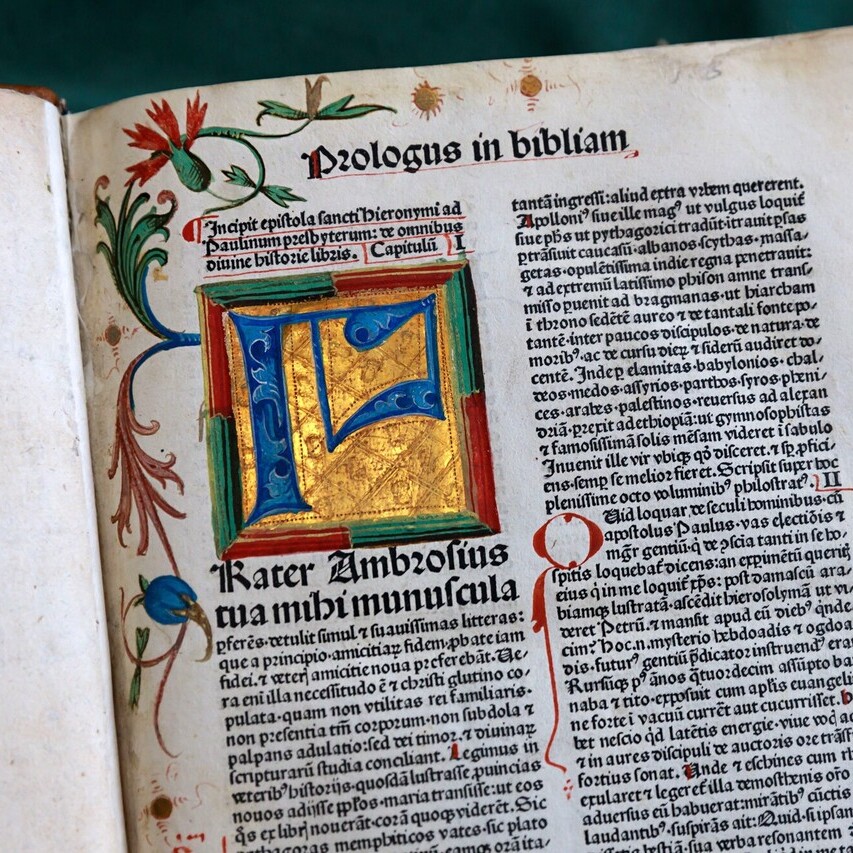 Prologus in bibliam
Incipit epistola sancti Hieronymi ad
Paulinum presbyterum: de omnibus
divine historie libris. Capitulū I
F
Rater Ambrosius
tua mihi munuscula
ꝑferēs. detulit simul ⁊ suavissimas litteras:
que a principio amicitiaꝝ fidem ꝓbate iam
fidei. ⁊ veteris amicitie noua preferebāt. Ue-
ra eni illa necessitudo ē ⁊ christi glutino co-
pulata. quam non vtilitas rei familiaris.
non presentia tm̄ corporum. non subdola ⁊
palpans adulatio: sed dei timor. ⁊ diuinaꝝ
scripturarū studia conciliant. Legimus in
veteribꝰ historijs. quosdā lustrasse ꝓuincias
nouos adijsse ppl̄os. maria transisse: ut eos
qͦs ex libris nouerāt. corā quoqꝫ viderēt. Sic
memphiticos vates. sic plato
tantā ingressi: aliud extra vrbem quererent.
Apolloniꝰ siue ille magꝰ ut vulgus loquit̄
siue ph̄s ut pythagorici tradūt. itrauit ꝑsas
ꝑtrāsiuit caucasū. albanos. scythas. massa-
getas. opulētissima indie regna penetrauit:
⁊ ad extremū latissimo phison amne trans-
misso ꝑuenit ad bragmanas. ut hiarcham
ī throno sedētē aureo ⁊ de tantali fonte po-
tantē. inter paucos discipulos. de natura. de
moribꝰ. ac de cursu dieꝝ ⁊ siderū audiret do-
centē. Inde ꝑ elamitas. babylonios. chal-
deos. medos. assyrios. parthos. syros. pheni-
ces. arabes. palestinos. reuersus ad alexan
driā. ꝑrexit ad ethiopiā: ut gymnosophistas
⁊ famosissimā solis mēsam videret ī sabulo
Inuenit ille vir vbiqꝫ qͦ disceret. ⁊ sꝑ ꝓfici-
ens. semꝑ se melior fieret. Scripsit super hoc
plenissime octo voluminibꝰ philostratꝰ. II
Quid loquar de seculi hominibus. cū
apostolus Paulus. vas electiōis ⁊
mg̅r gentiū. q̇ de ꝯscia tanti in se ho-
spitis loquebat̄ dicens: an expimētū querit̄
eius q̇ in me loquit̄ xp̄s: post damascū ara-
biamqꝫ lustratā. ascēdit hierosolymā ut vi-
deret Petrū. ⁊ mansit apud eū diebꝰ qͥnde-
cim: hoc. n. mysterio hebdoadis ⁊ ogdoa
dis. futurꝰ gentiū p̄dicator instruendꝰ era
Rursūqꝫ pꝰ ānos qͣtuordecim assūpto ba
naba ⁊ tito. exposuit cum apl̄is euangeli
ne forte ī vacuū currēt aut cucurrisset.
bet nescio qͥd latētis energie. viue
⁊ in aures discipuli de auctoris ore
fortius sonat. Unde ⁊ eschines cum
exularet ⁊ legeret̄ illa demosthenis
aduersus eū habuerat: mirātibꝰ cūctis
laudantibꝰ. suspirās ait: Quid. si
bestiā. sua verba resonantem